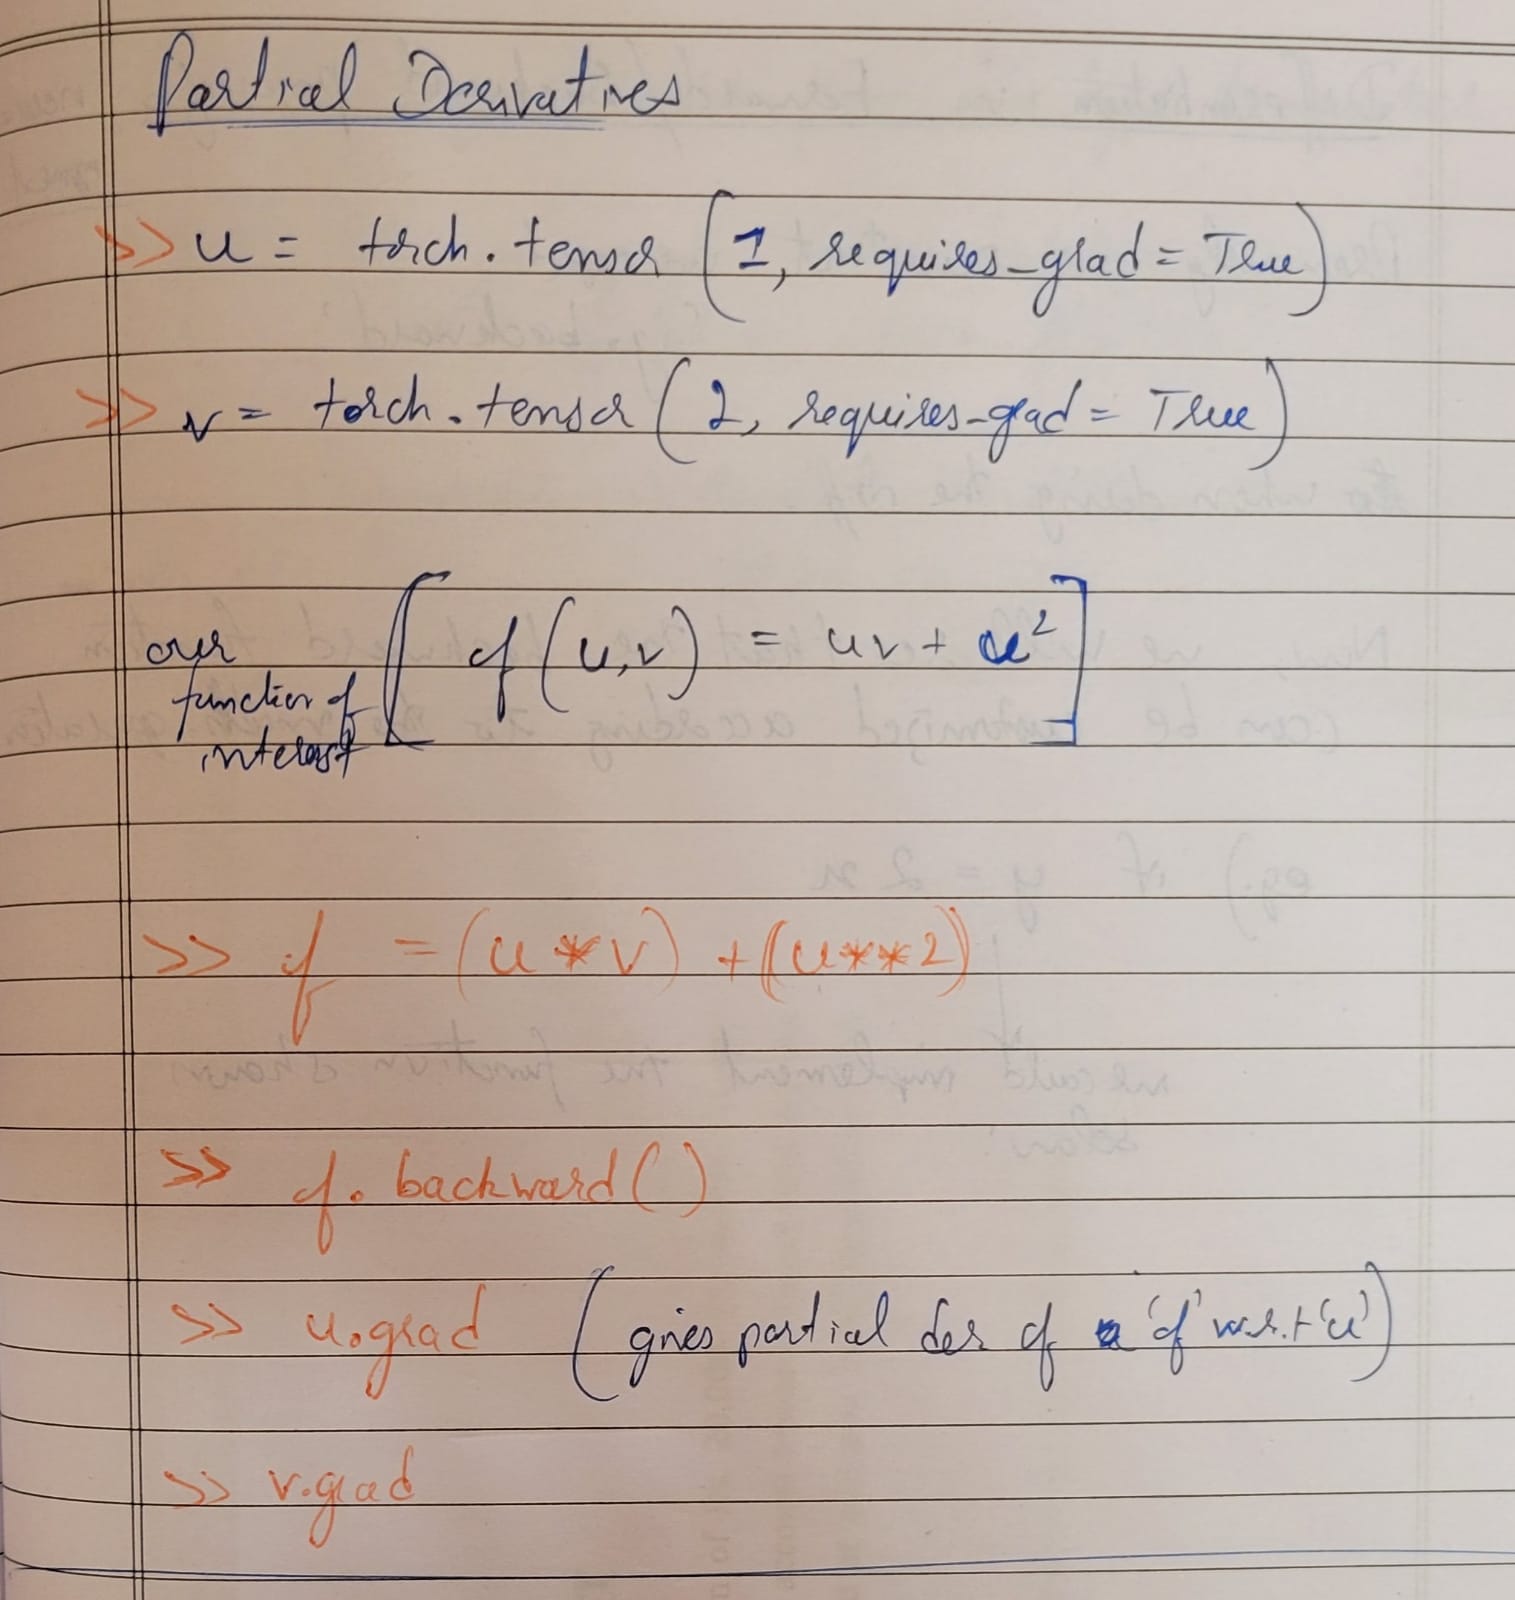 Partial Derivatives
>> u = torch.tensor (1, requires_grad = True)
>> v = torch.tensor (2, requires_grad = True)
our function of interest [ f(u,v) = uv + u² ]
>> f = (u * v) + (u**2)
>> f.backward()
>> u.grad (gives partial der of 'f' w.r.t 'u')
>> v.grad